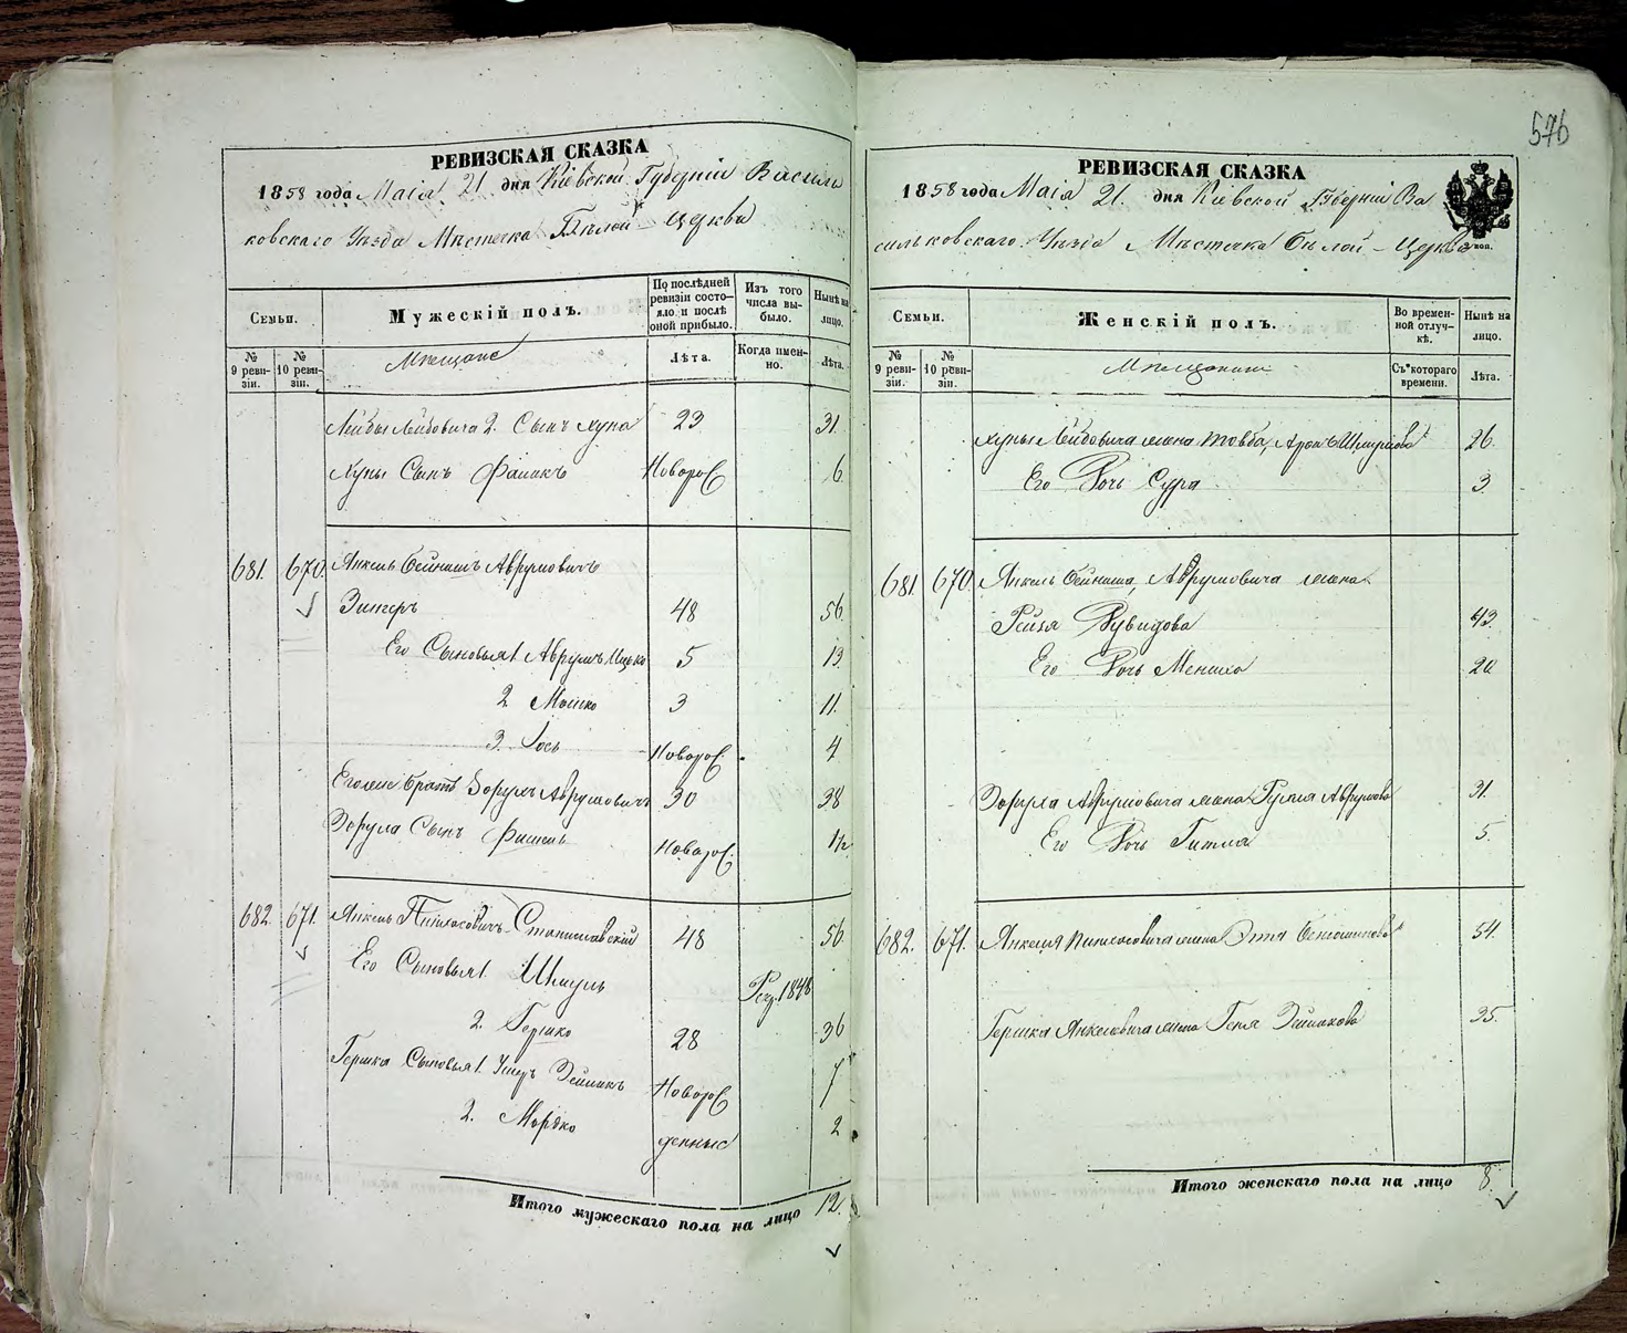 576
РЕВИЗСКАЯ СКАЗКА
1858 года Маія 21 дня Кіевской Губерніи Василь
ковскаго Уѣзда Мѣстечка Бѣлой-Церкви
Семьи.
Мужескій полъ.
По послѣдней ревизіи состо-
яло и послѣ оной прибыло.
Изъ того числа вы-
было.
Нынѣ на лицо.
№ 9 реви-
зіи.
№ 10 реви-
зіи.
Мѣщане
Лѣта.
Когда имен-
но.
Лѣта.
Лейбы Лейбовича 2. Сынъ Хуна 23 31.
Хуны Сынъ Файвикъ Новорож 6.
681. 670. Янкель Бейнишъ Аврумовичъ
48 56.
Его Сыновья 1 Аврумъ Ицько 5 13
2 Мошко 3 11.
3. Іось Новорож. 4
Его же братъ Аврумовичъ 30 38
Сынъ Фишель Новорож. 1½
682. 671. Янкель Пинхасовичъ Станиславскій 48 56.
Его Сыновья 1. Шмуль 1848
2. Гершко 28 36
Гершка Сыновья 1. Новорож 7
2. Мордко денные 2
Итого мужескаго пола на лицо 12.
РЕВИЗСКАЯ СКАЗКА
1858 года Маія 21. дня Кіевской Губерніи Ва
сильковскаго Уѣзда Мѣстечка Бѣлой-Церкви
коп.
Семьи.
Женскій полъ.
Во времен-
ной отлуч-
кѣ.
Нынѣ на лицо.
№ 9 реви-
зіи.
№ 10 реви-
зіи.
Мѣщанки
Съ котораго времени.
Лѣта.
Хуны Лейбовича жена Товба, 26.
Его Дочь Сура 3
681. 670. Янкель Бейниша, Аврумовича жена
Рейзя Дувидова 43.
Его Дочь 20
Аврумовича жена Аврумова 31.
Его Дочь Гитля 5.
682. 671. Янкеля Пинхасовича жена Этя 54.
Гершка Янкелевича жена Геня 35.
Итого женскаго пола на лицо 8.